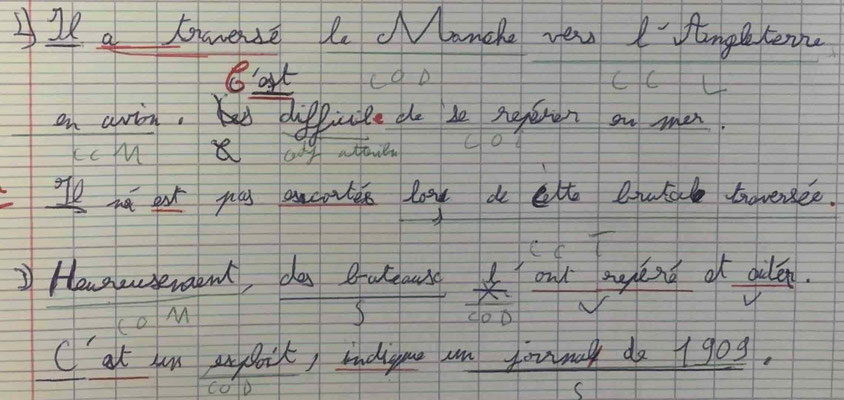 2) Il a traversé le Manche vers l'Angleterre
C'est COD CCL
en avion. difficile de se repérer en mer.
CCM adj attribu
Il n'est pas escortés lors de cette brutale traversée.
S
CCT
3) Heureusement, des bateaux l'ont repéré et aidér.
CCM S COD
C'est un exploit, indique un journal de 1909.
COD S